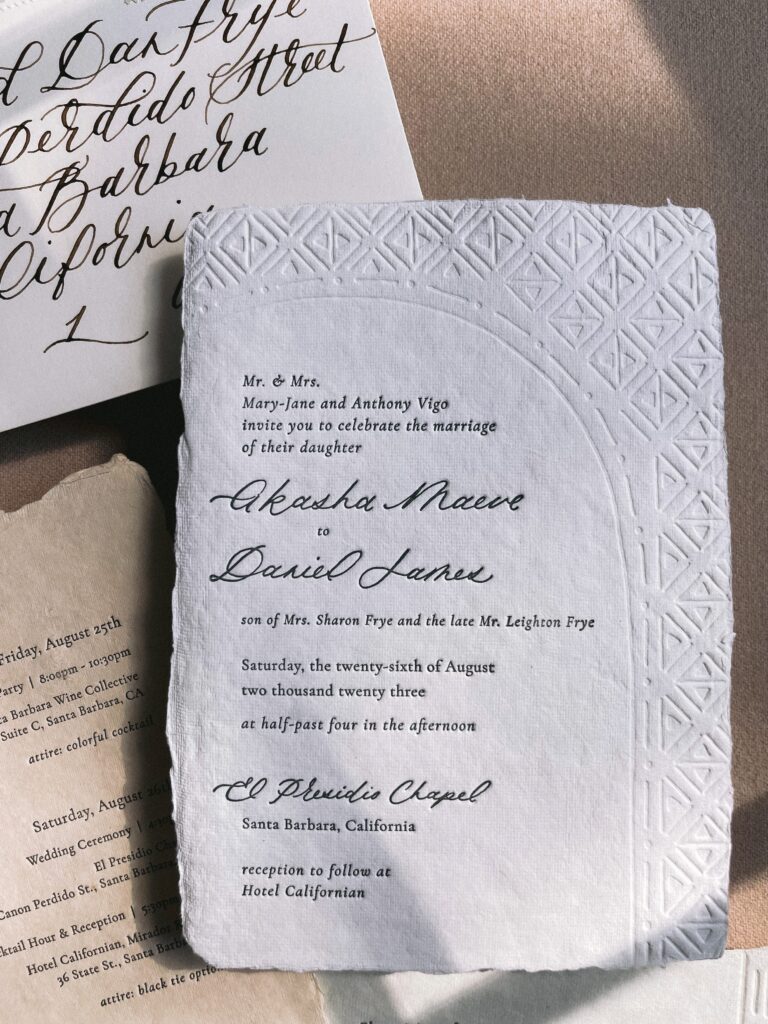 Dan Frye
Perdido Street
Barbara
1
Mr. & Mrs.
Mary-Jane and Anthony Vigo
invite you to celebrate the marriage
of their daughter
Akasha Maeve
to
Daniel James
son of Mrs. Sharon Frye and the late Mr. Leighton Frye
Saturday, the twenty-sixth of August
two thousand twenty three
at half-past four in the afternoon
El Presidio Chapel
Santa Barbara, California
reception to follow at
Hotel Californian
Friday, August 25th
Party | 8:00pm - 10:30pm
Barbara Wine Collective
Suite C, Santa Barbara, CA
attire: colorful cocktail
Saturday, August 26th
Wedding Ceremony |
El Presidio
Canon Perdido St., Santa Barbara
Hour & Reception | 5:30pm
Hotel Californian, Mirador
36 State St., Santa
attire: black tie